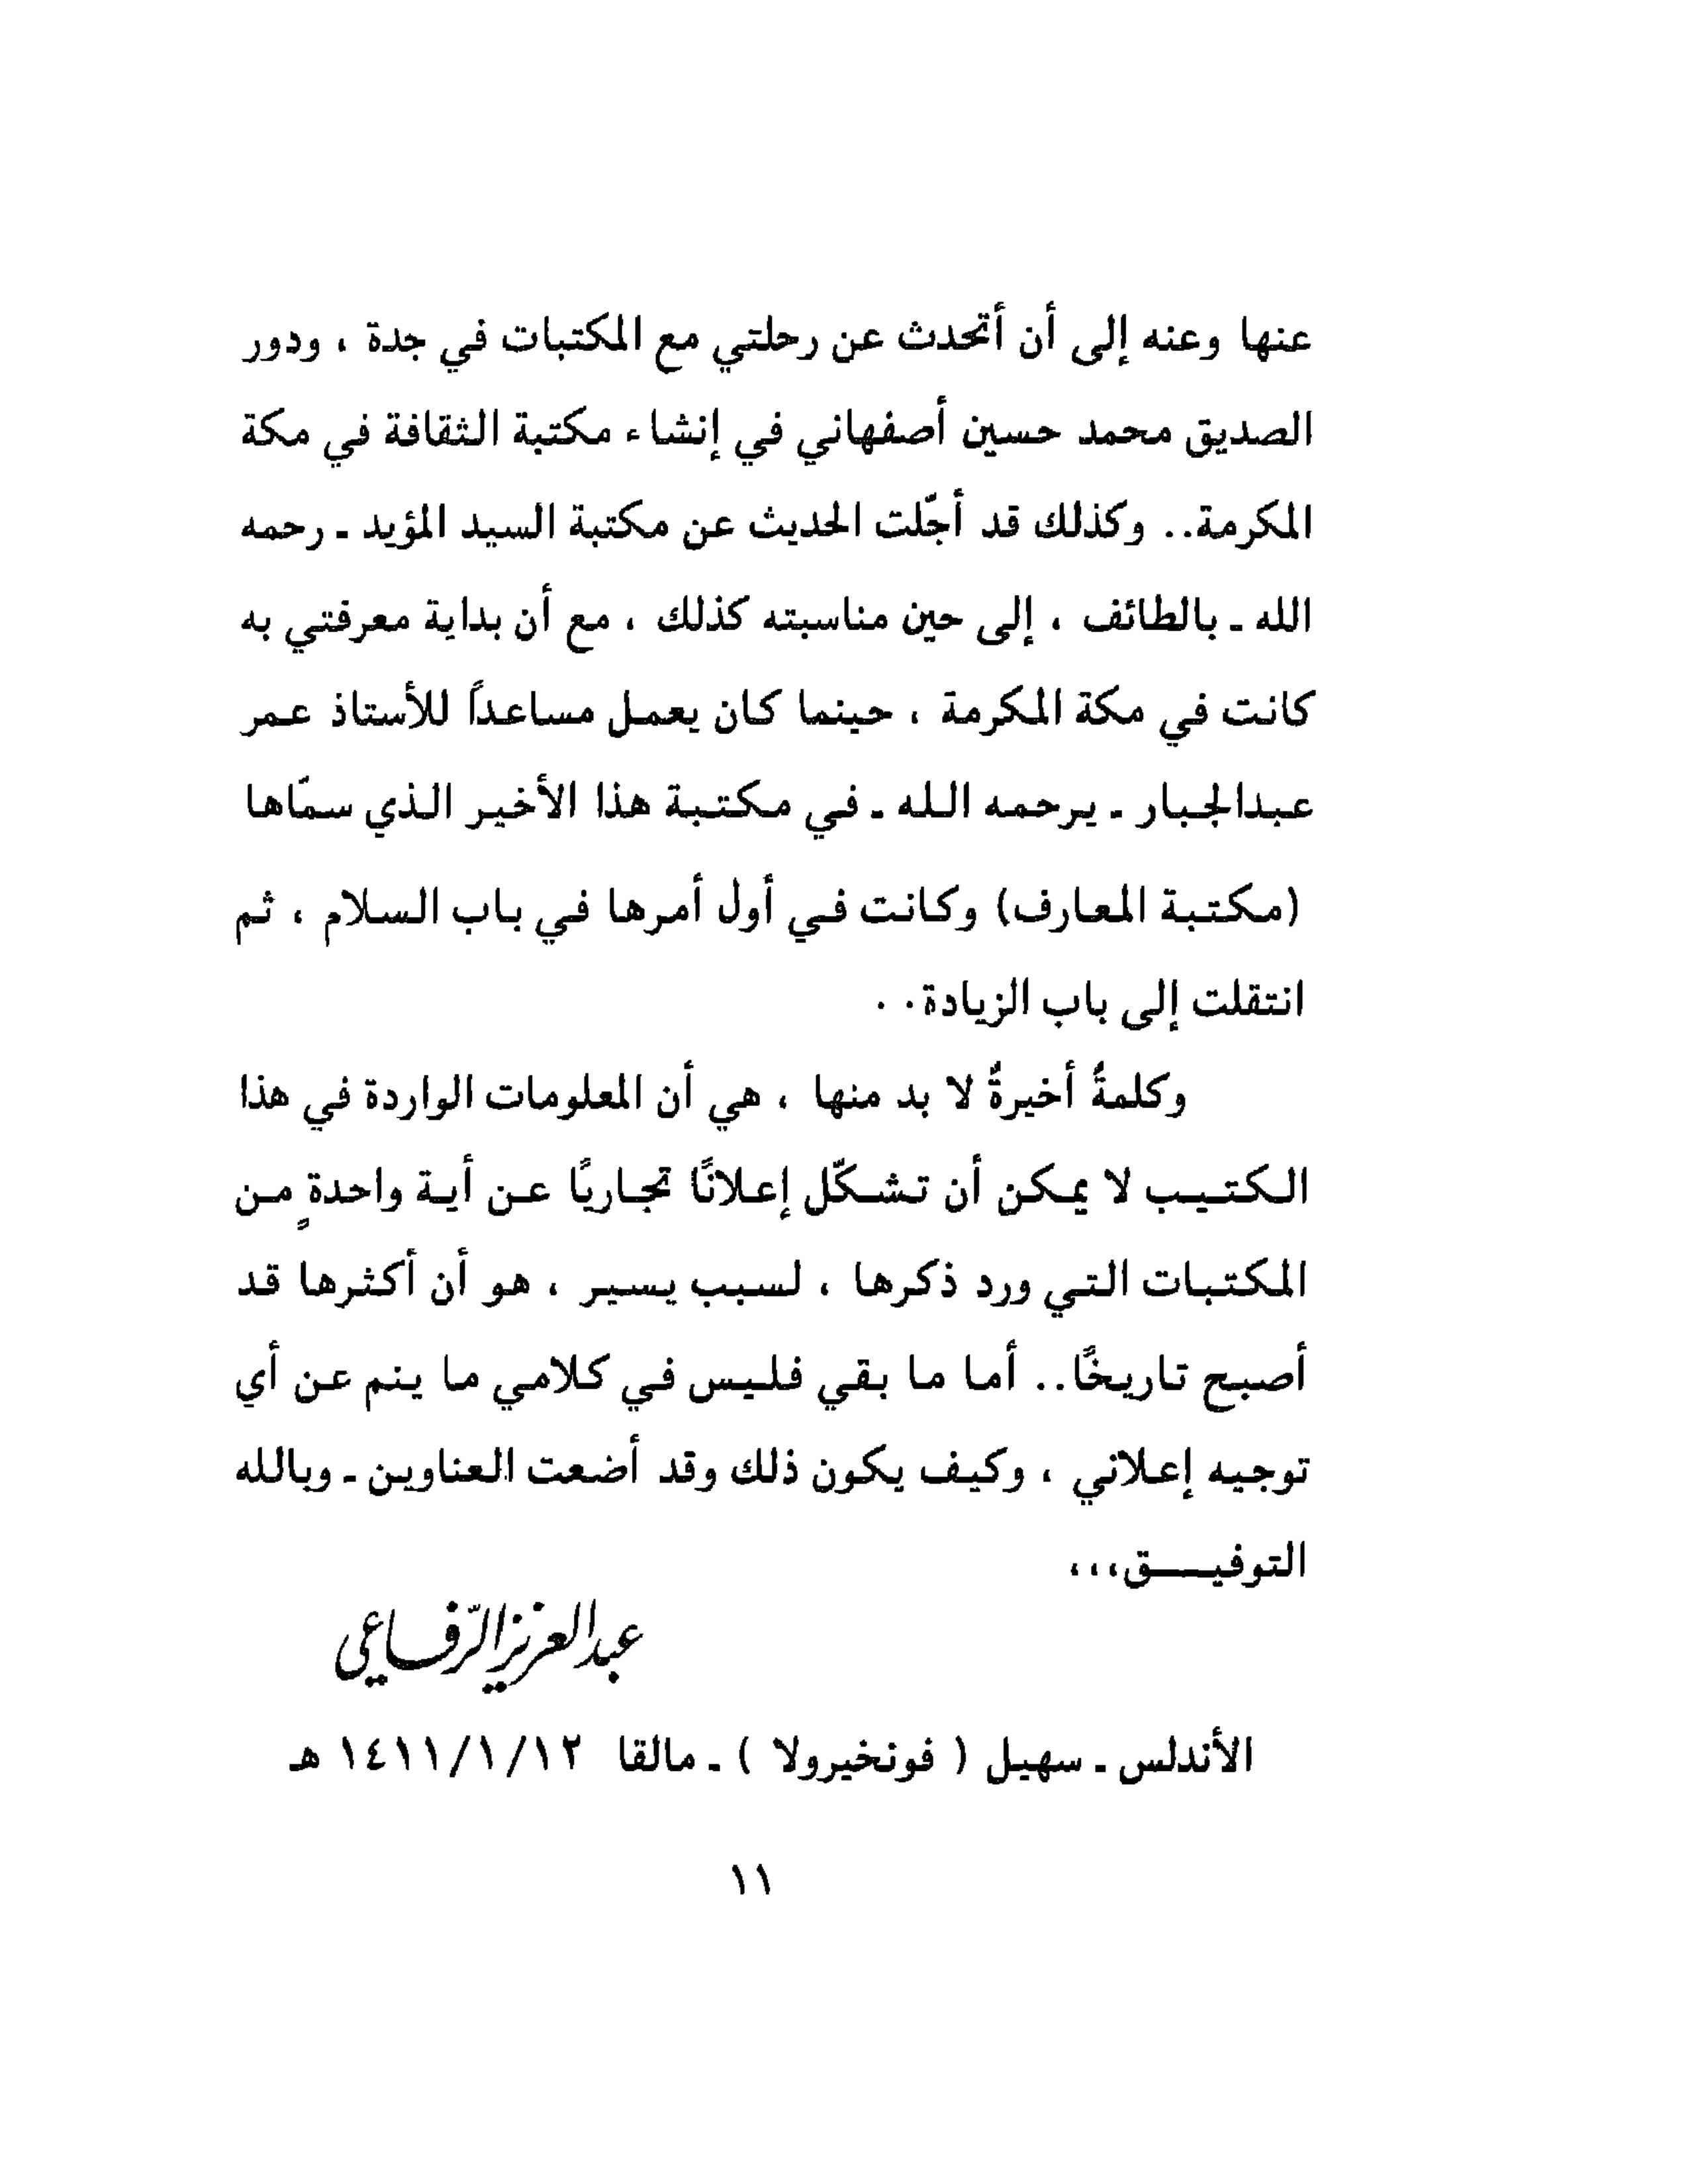 عنها وعنه إلى أن أتحدث عن رحلتي مع المكتبات في جدة ، ودور
الصديق محمد حسين أصفهاني في إنشاء مكتبة الثقافة في مكة
المكرمة.. وكذلك قد أجّلت الحديث عن مكتبة السيد المؤيد ـ رحمه
الله ـ بالطائف ، إلى حين مناسبته كذلك ، مع أن بداية معرفتي به
كانت في مكة المكرمة ، حينما كان يعمل مساعداً للأستاذ عمر
عبدالجبار ـ يرحمه الله ـ في مكتبة هذا الأخير الذي سمّاها
(مكتبة المعارف) وكانت في أول أمرها في باب السلام ، ثم
انتقلت إلى باب الزيادة . .
وكلمةٌ أخيرةٌ لا بد منها ، هي أن المعلومات الواردة في هذا
الكتيب لا يمكن أن تشكّل إعلانًا تجاريًا عن أية واحدةٍ من
المكتبات التي ورد ذكرها ، لسبب يسير ، هو أن أكثرها قد
أصبح تاريخًا.. أما ما بقي فليس في كلامي ما ينم عن أي
توجيه إعلاني ، وكيف يكون ذلك وقد أضعت العناوين ـ وبالله
التوفيـــق،،،
عبدالعزيز الرّفاعي
الأندلس ـ سهيل ( فونخيرولا ) ـ مالقا ١٤١١/١/١٢ هـ
١١